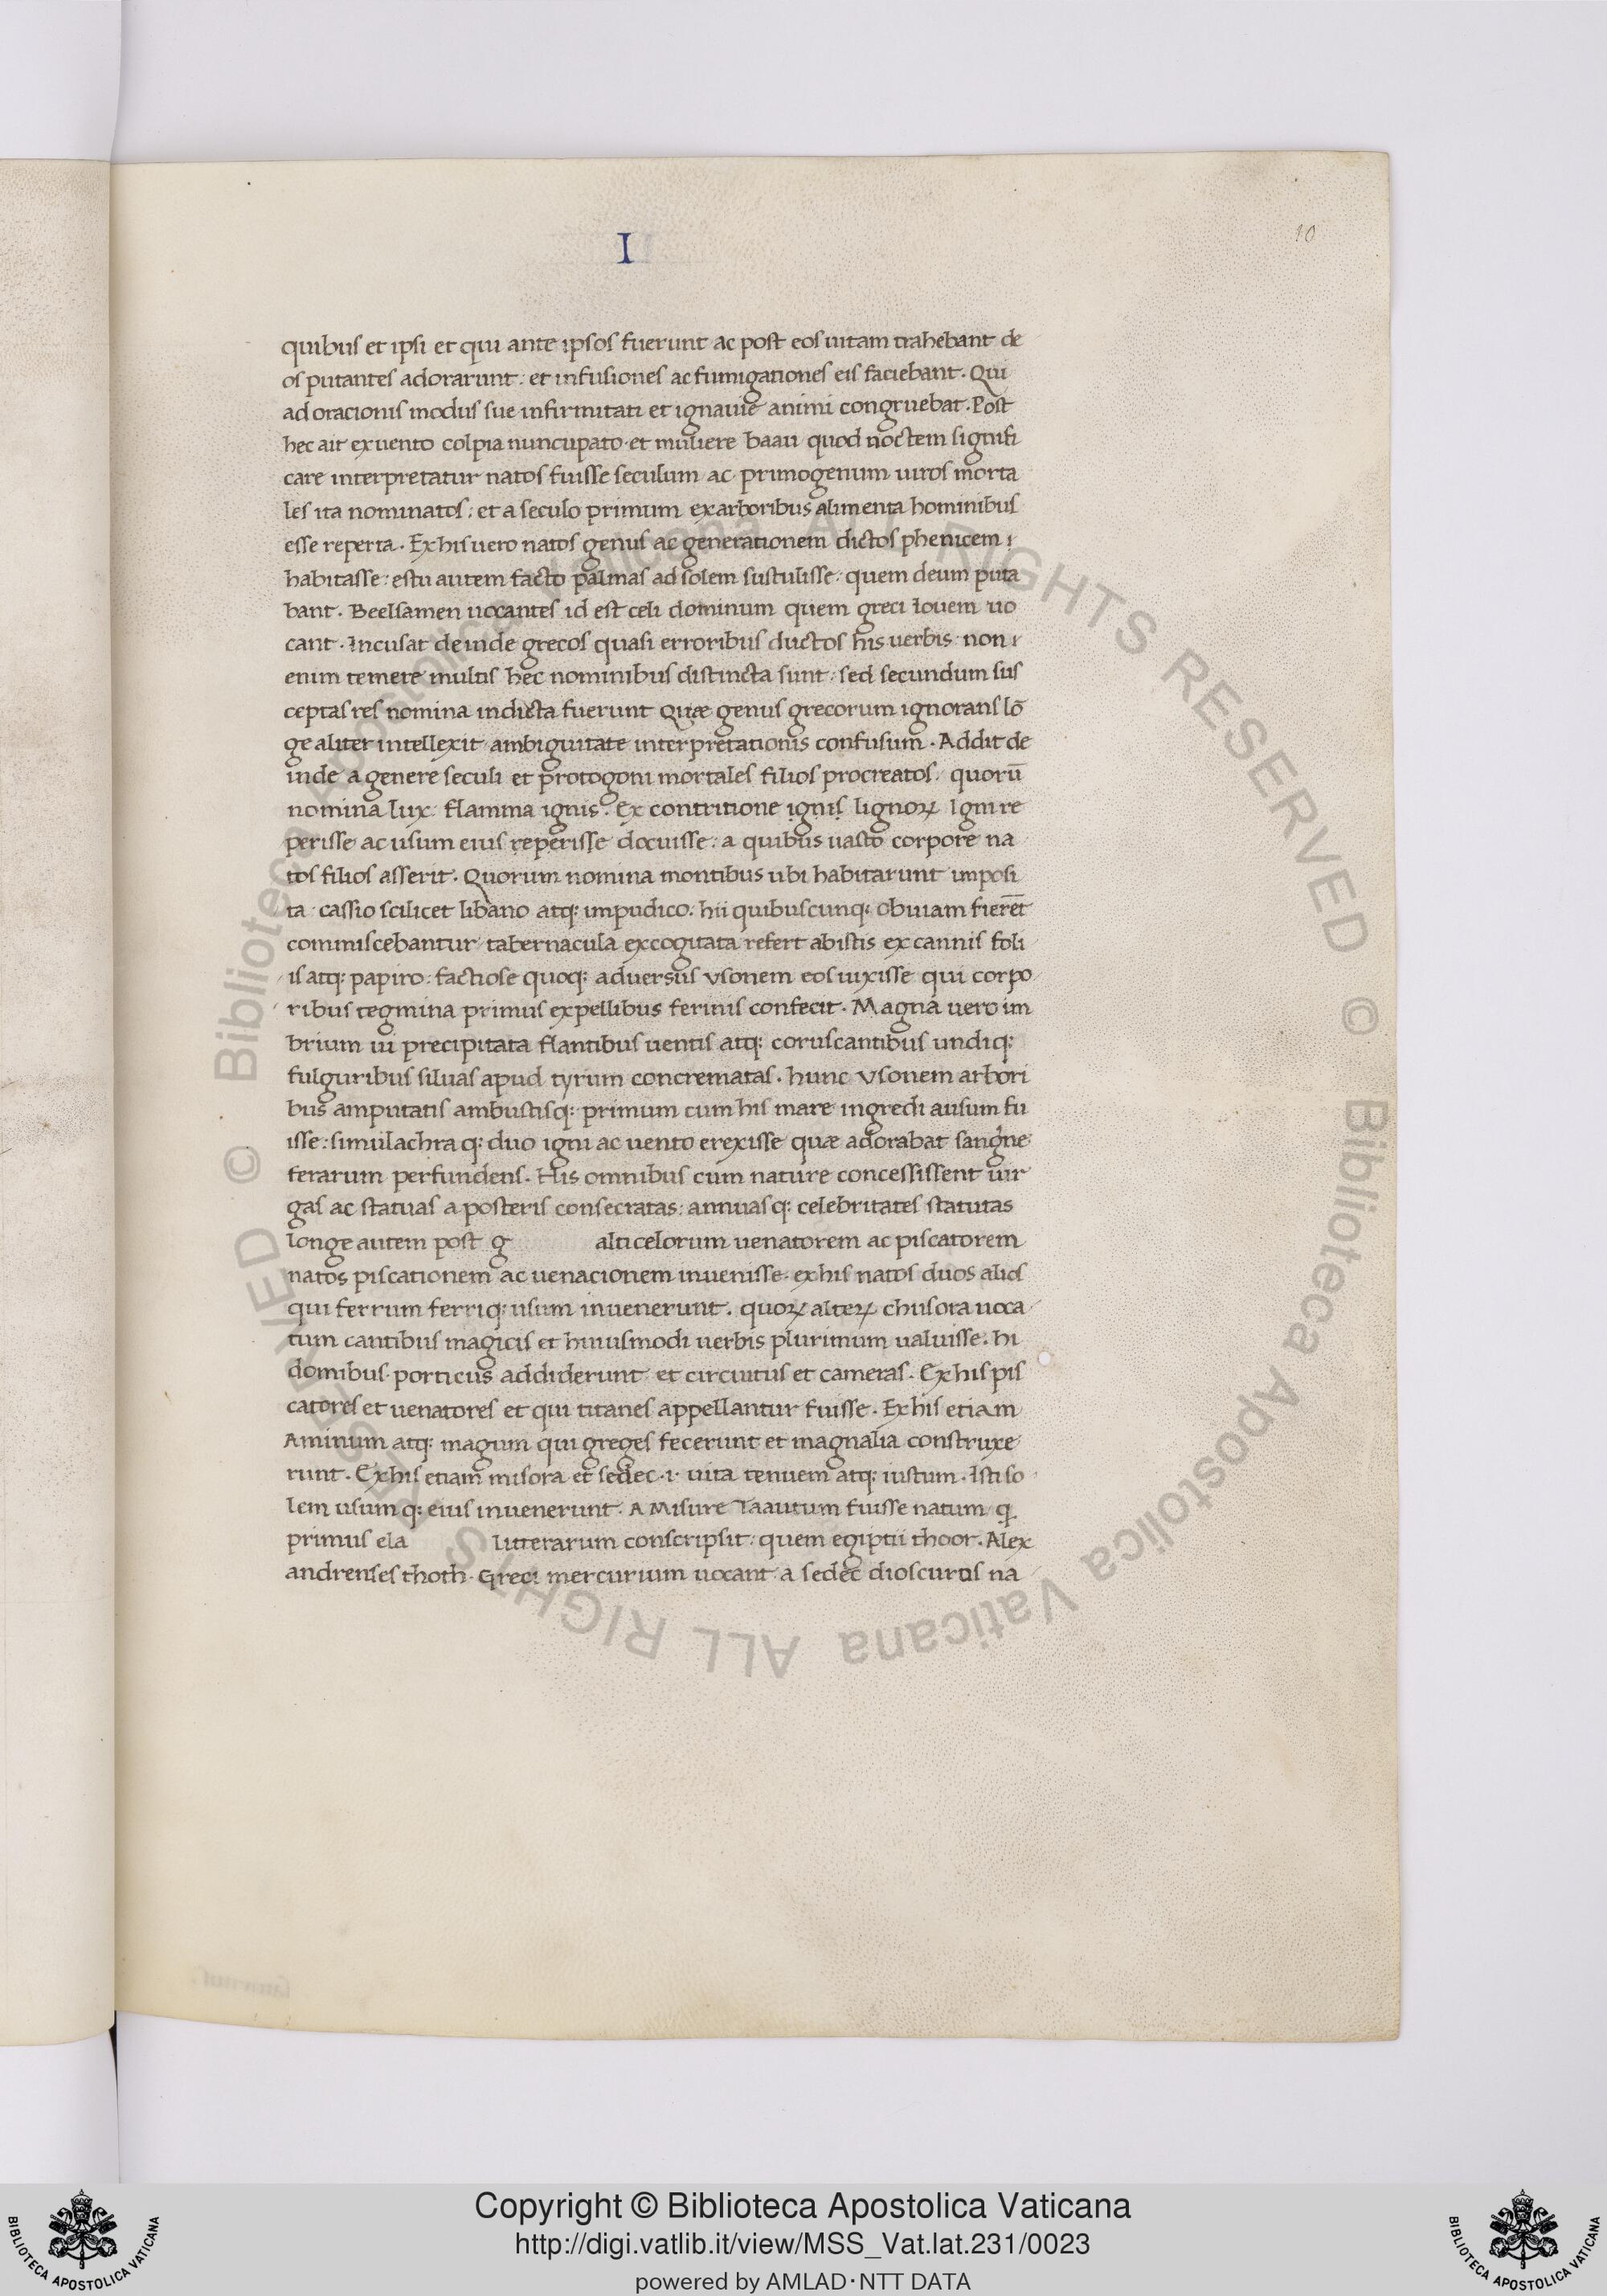 I
10
quibus et ipsi et qui ante ipsos fuerunt ac post eos uitam trahebant de
os putantes adorarunt: et infusiones ac fumigationes eis faciebant. Qui
ad oracionis modus sue infirmitati et ignauie animi congruebat. Post
hec ait ex uento colpia nuncupato et muliere baau quod noctem signifi
care interpretatur natos fuisse seculum ac primogenum uiros morta
les ita nominatos: et a seculo primum ex arboribus alimenta hominibus
esse reperta. Ex his uero natos genus ac generationem dictos phenicem
habitasse: estu autem facto palmas ad solem sustulisse: quem deum puta
bant. Beelsamen uocantes id est celi dominum quem greci Iouem uo
cant. Incusat deinde grecos quasi erroribus ductos his uerbis non
enim temere multis hec nominibus distincta sunt: sed secundum sus
ceptas res nomina indicta fuerunt Quæ genus grecorum ignorans lō
ge aliter intellexit ambiguitate interpretationis confusum. Addit de
inde a genere seculi et protogoni mortales filios procreatos. quorū
nomina lux flamma ignis. Ex contritione ignis lignoꝝ Igni re
perisse ac usum eius reperisse docuisse: a quibus uasto corpore na
tos filios asserit. Quorum nomina montibus ubi habitarunt imposi
ta cassio scilicet libano atq: impudico. hii quibuscunq: obuiam fierēt
commiscebantur tabernacula excogitata refert ab istis ex cannis foli
is atq: papiro: factiose quoq: aduersus Vsonem eos uixisse qui corpo
ribus tegmina primus ex pellibus ferinis confecit. Magna uero im
brium ui precipitata flantibus uentis atq: coruscantibus undiq:
fulguribus siluas apud tyrum concrematas. hunc Vsonem arbori
bus amputatis ambustisq: primum cum his mare ingredi ausum fu
isse: simulachraq: duo igni ac uento erexisse quæ adorabat sangne
ferarum perfundens. His omnibus cum nature concessissent uir
gas ac statuas a posteris consecratas: annuasq: celebritates statutas
longe autem post g alticelorum uenatorem ac piscatorem
natos piscationem ac uenacionem inuenisse. ex his natos duos alios
qui ferrum ferriq: usum inuenerunt. quoꝝ alteꝝ chusora uoca
tum cantibus magicis et huiusmodi uerbis plurimum ualuisse. hi
domibus porticus addiderunt et circuitus et cameras. Ex his pis
catores et uenatores et qui titanes appellantur fuisse. Ex his etiam
Aminum atq: magum qui greges fecerunt et magnalia construxe
runt. Ex his etiam misora et sedec .i. uita tenuem atq: iustum. Isti so
lem usumq: eius inuenerunt. A Misure Taautum fuisse natum q
primus ela litterarum conscripsit: quem egiptii thoor. Alex
andrenses thoth. Greci mercurium uocant a sedec dioscuros na
Copyright © Biblioteca Apostolica Vaticana
http://digi.vatlib.it/view/MSS_Vat.lat.231/0023
powered by AMLAD·NTT DATA
BIBLIOTECA APOSTOLICA VATICANA
BIBLIOTECA APOSTOLICA VATICANA
© Biblioteca Apostolica Vaticana ALL RIGHTS RESERVED © Biblioteca Apostolica Vaticana ALL RIGHTS RESERVED